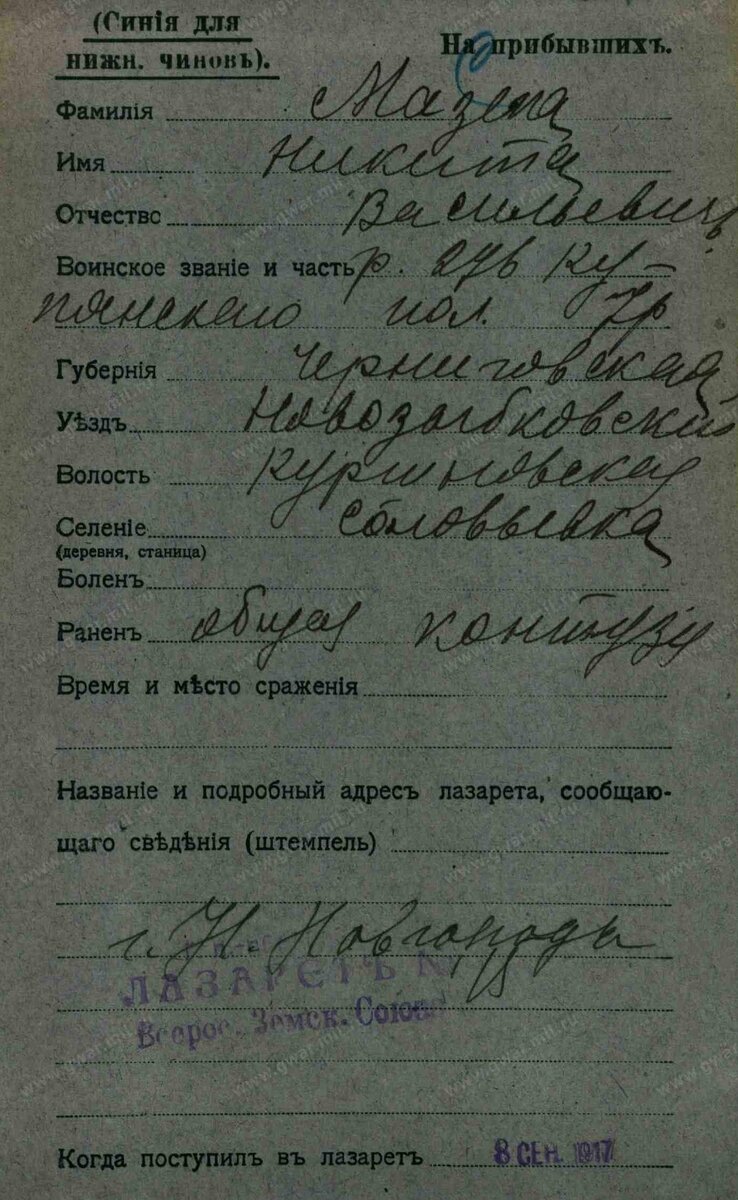 (Синія для
нижн. чиновъ).
На прибывшихъ.
Фамилія Мазепа
Имя Никита
Отчество Васильевичъ
Воинское званіе и часть р. 276 Ку-
пянскаго пол. 7р
Губернія Черниговская
Уѣздъ Новозыбковский
Волость
Селеніе Соловьевка
(деревня, станица)
Боленъ
Раненъ общая контузія
Время и мѣсто сраженія
Названіе и подробный адресъ лазарета, сообщаю-
щаго свѣдѣнія (штемпель)
г. Н. Новгородъ
ЛАЗАРЕТЪ №
Всерос. Земск. Союза
Когда поступилъ въ лазаретъ 8 СЕН. 1917